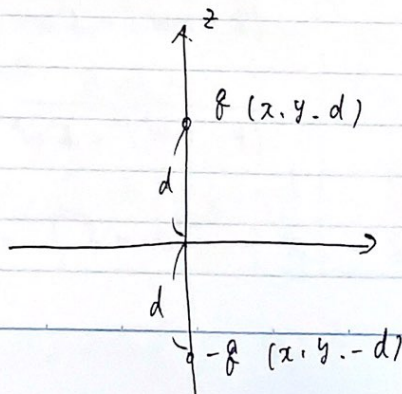 z
q (x, y, d)
d
d
-q (x, y, -d)